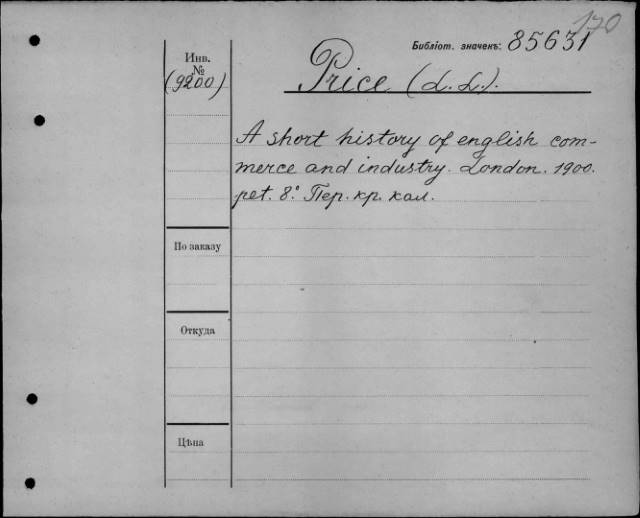 170
Библіот. значекъ: 85631
Инв.
№
(9200)
Price (L. L.).
A short history of english com-
merce and industry. London. 1900.
pet. 8.° Пер. кр. кал.
По заказу
Откуда
Цѣна